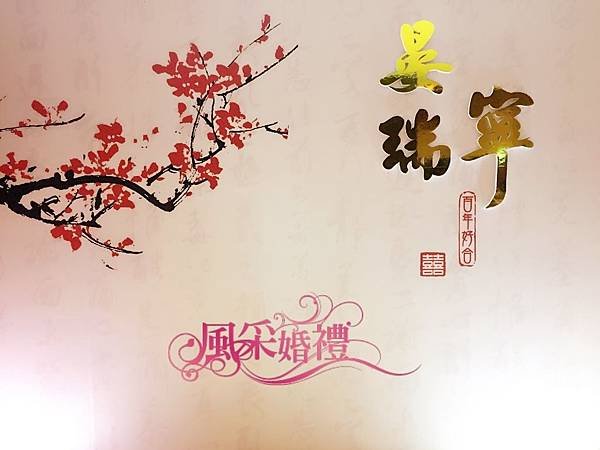 瑞
寧
百年好合
囍
風采婚禮